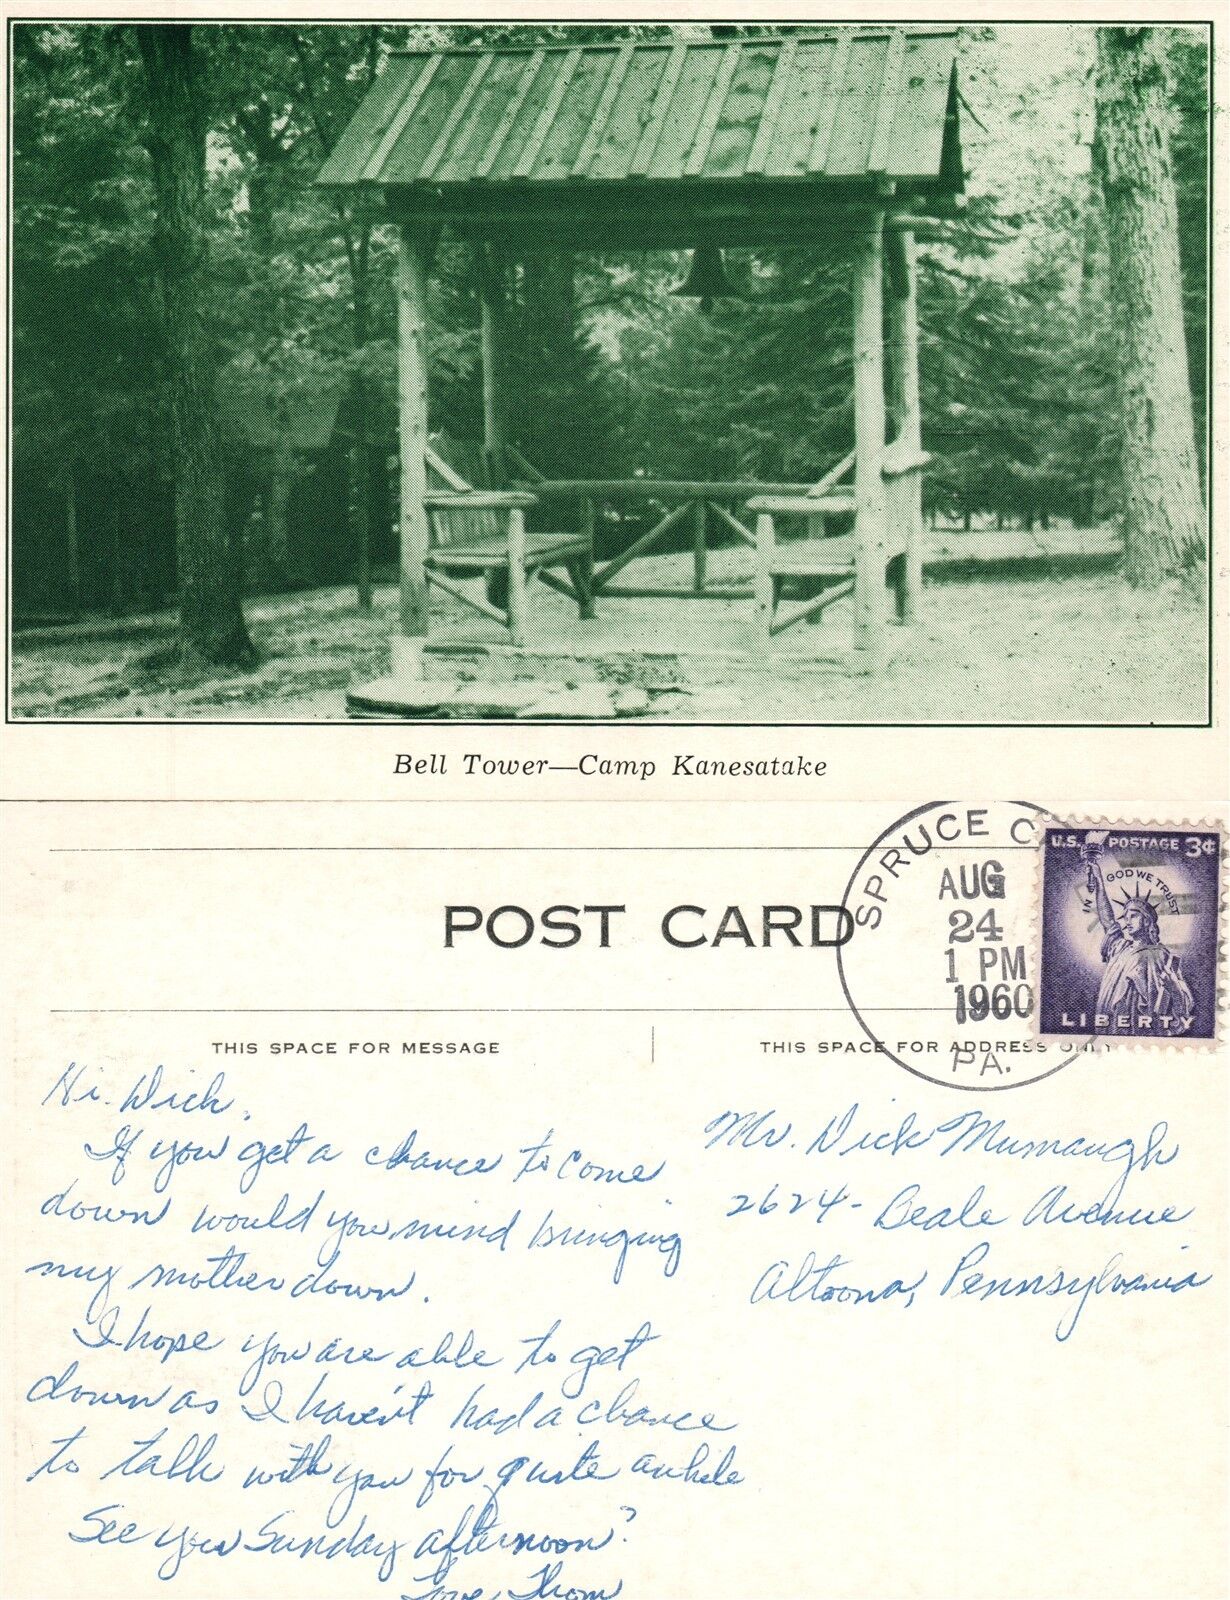 Bell Tower—Camp Kanesatake
SPRUCE C
AUG
24
1 PM
1960
PA.
U.S. POSTAGE 3¢
IN GOD WE TRUST
LIBERTY
POST CARD
THIS SPACE FOR MESSAGE
THIS SPACE FOR ADDRESS ONLY
Hi Dick,
If you get a chance to come
down would you mind bringing
my mother down.
I hope you are able to get
down as I haven't had a chance
to talk with you for quite awhile
See you Sunday afternoon?
Love, Thom
Mr. Dick Mumaugh
2624 - Beale Avenue
Altoona, Pennsylvania